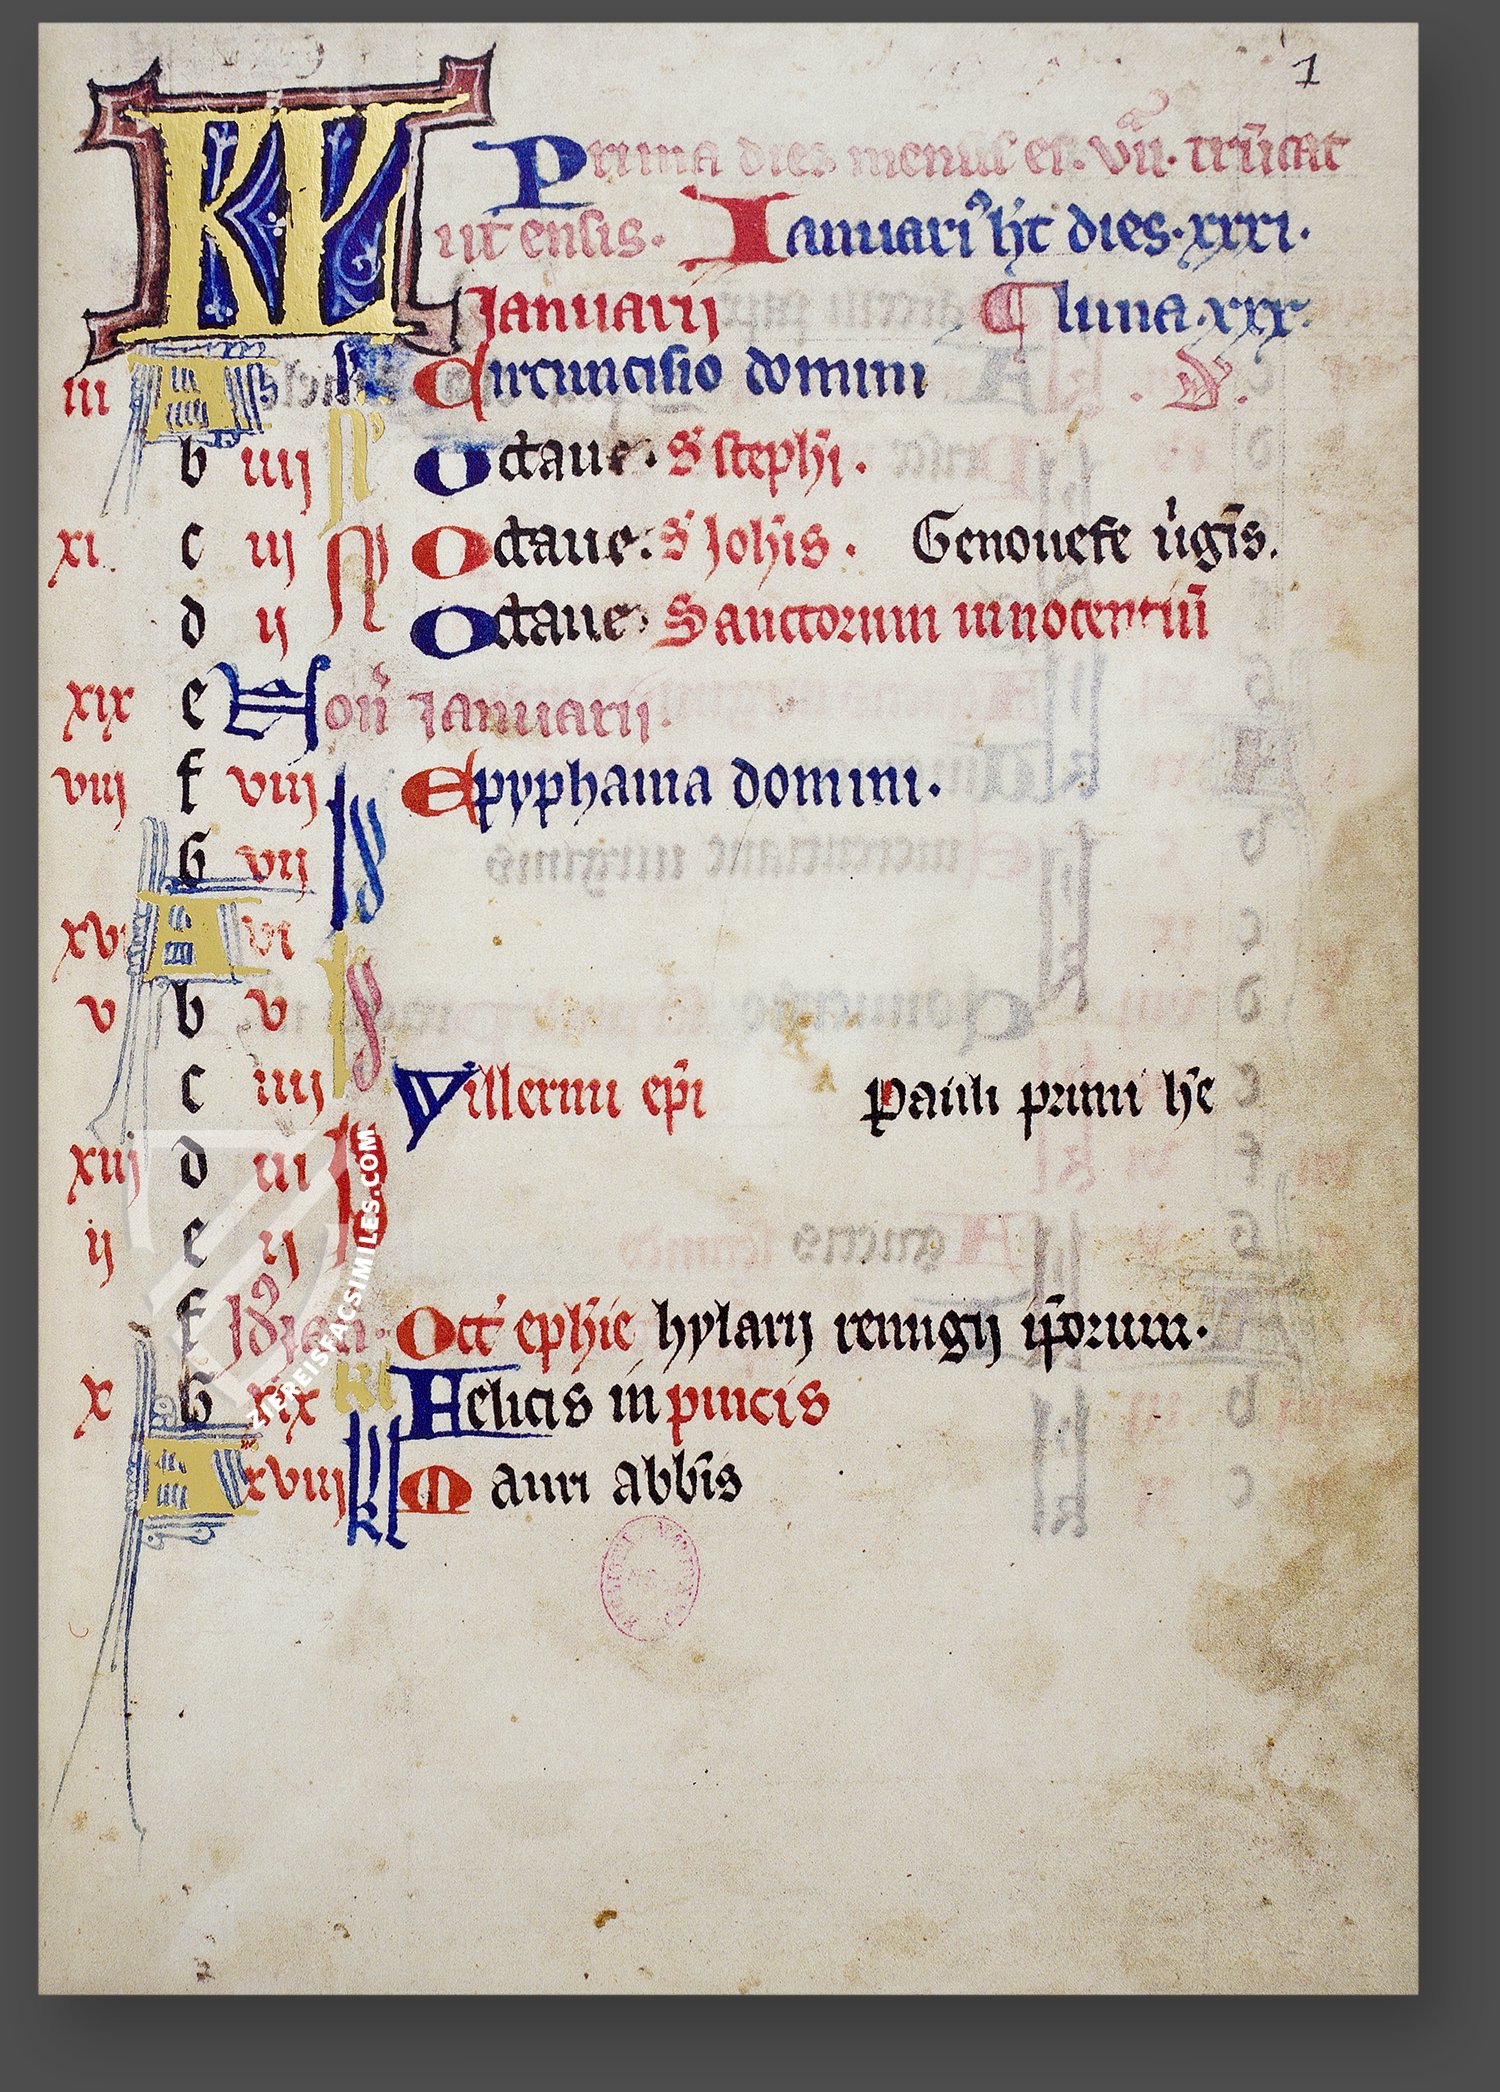 1
KL Prima dies mensis et .vii. trūcat
ut ensis. Ianuari9 ht dies .xxxi.
Januarij luna .xxx.
iii A Circuncisio domini .d.
b iiij N Octaue. S stephi.
xi. c iij N Octaue. S Johis. Genouefe ūgis.
d ij Octaue. Sanctorum innocentiū
xix e Non Januarij.
viij f viij Id Epyphania domini.
G vij
xvi A vi
v b v Id
c iiij Willermi epi Pauli primi he
xiij d iii Id
ij e ij
f Id9 jan. Oct ephie hylarij remigij ip̄orum.
x G xix kl Felicis in pincis
A xviij kl Mauri abbis
ZIEREISFACSIMILES.COM